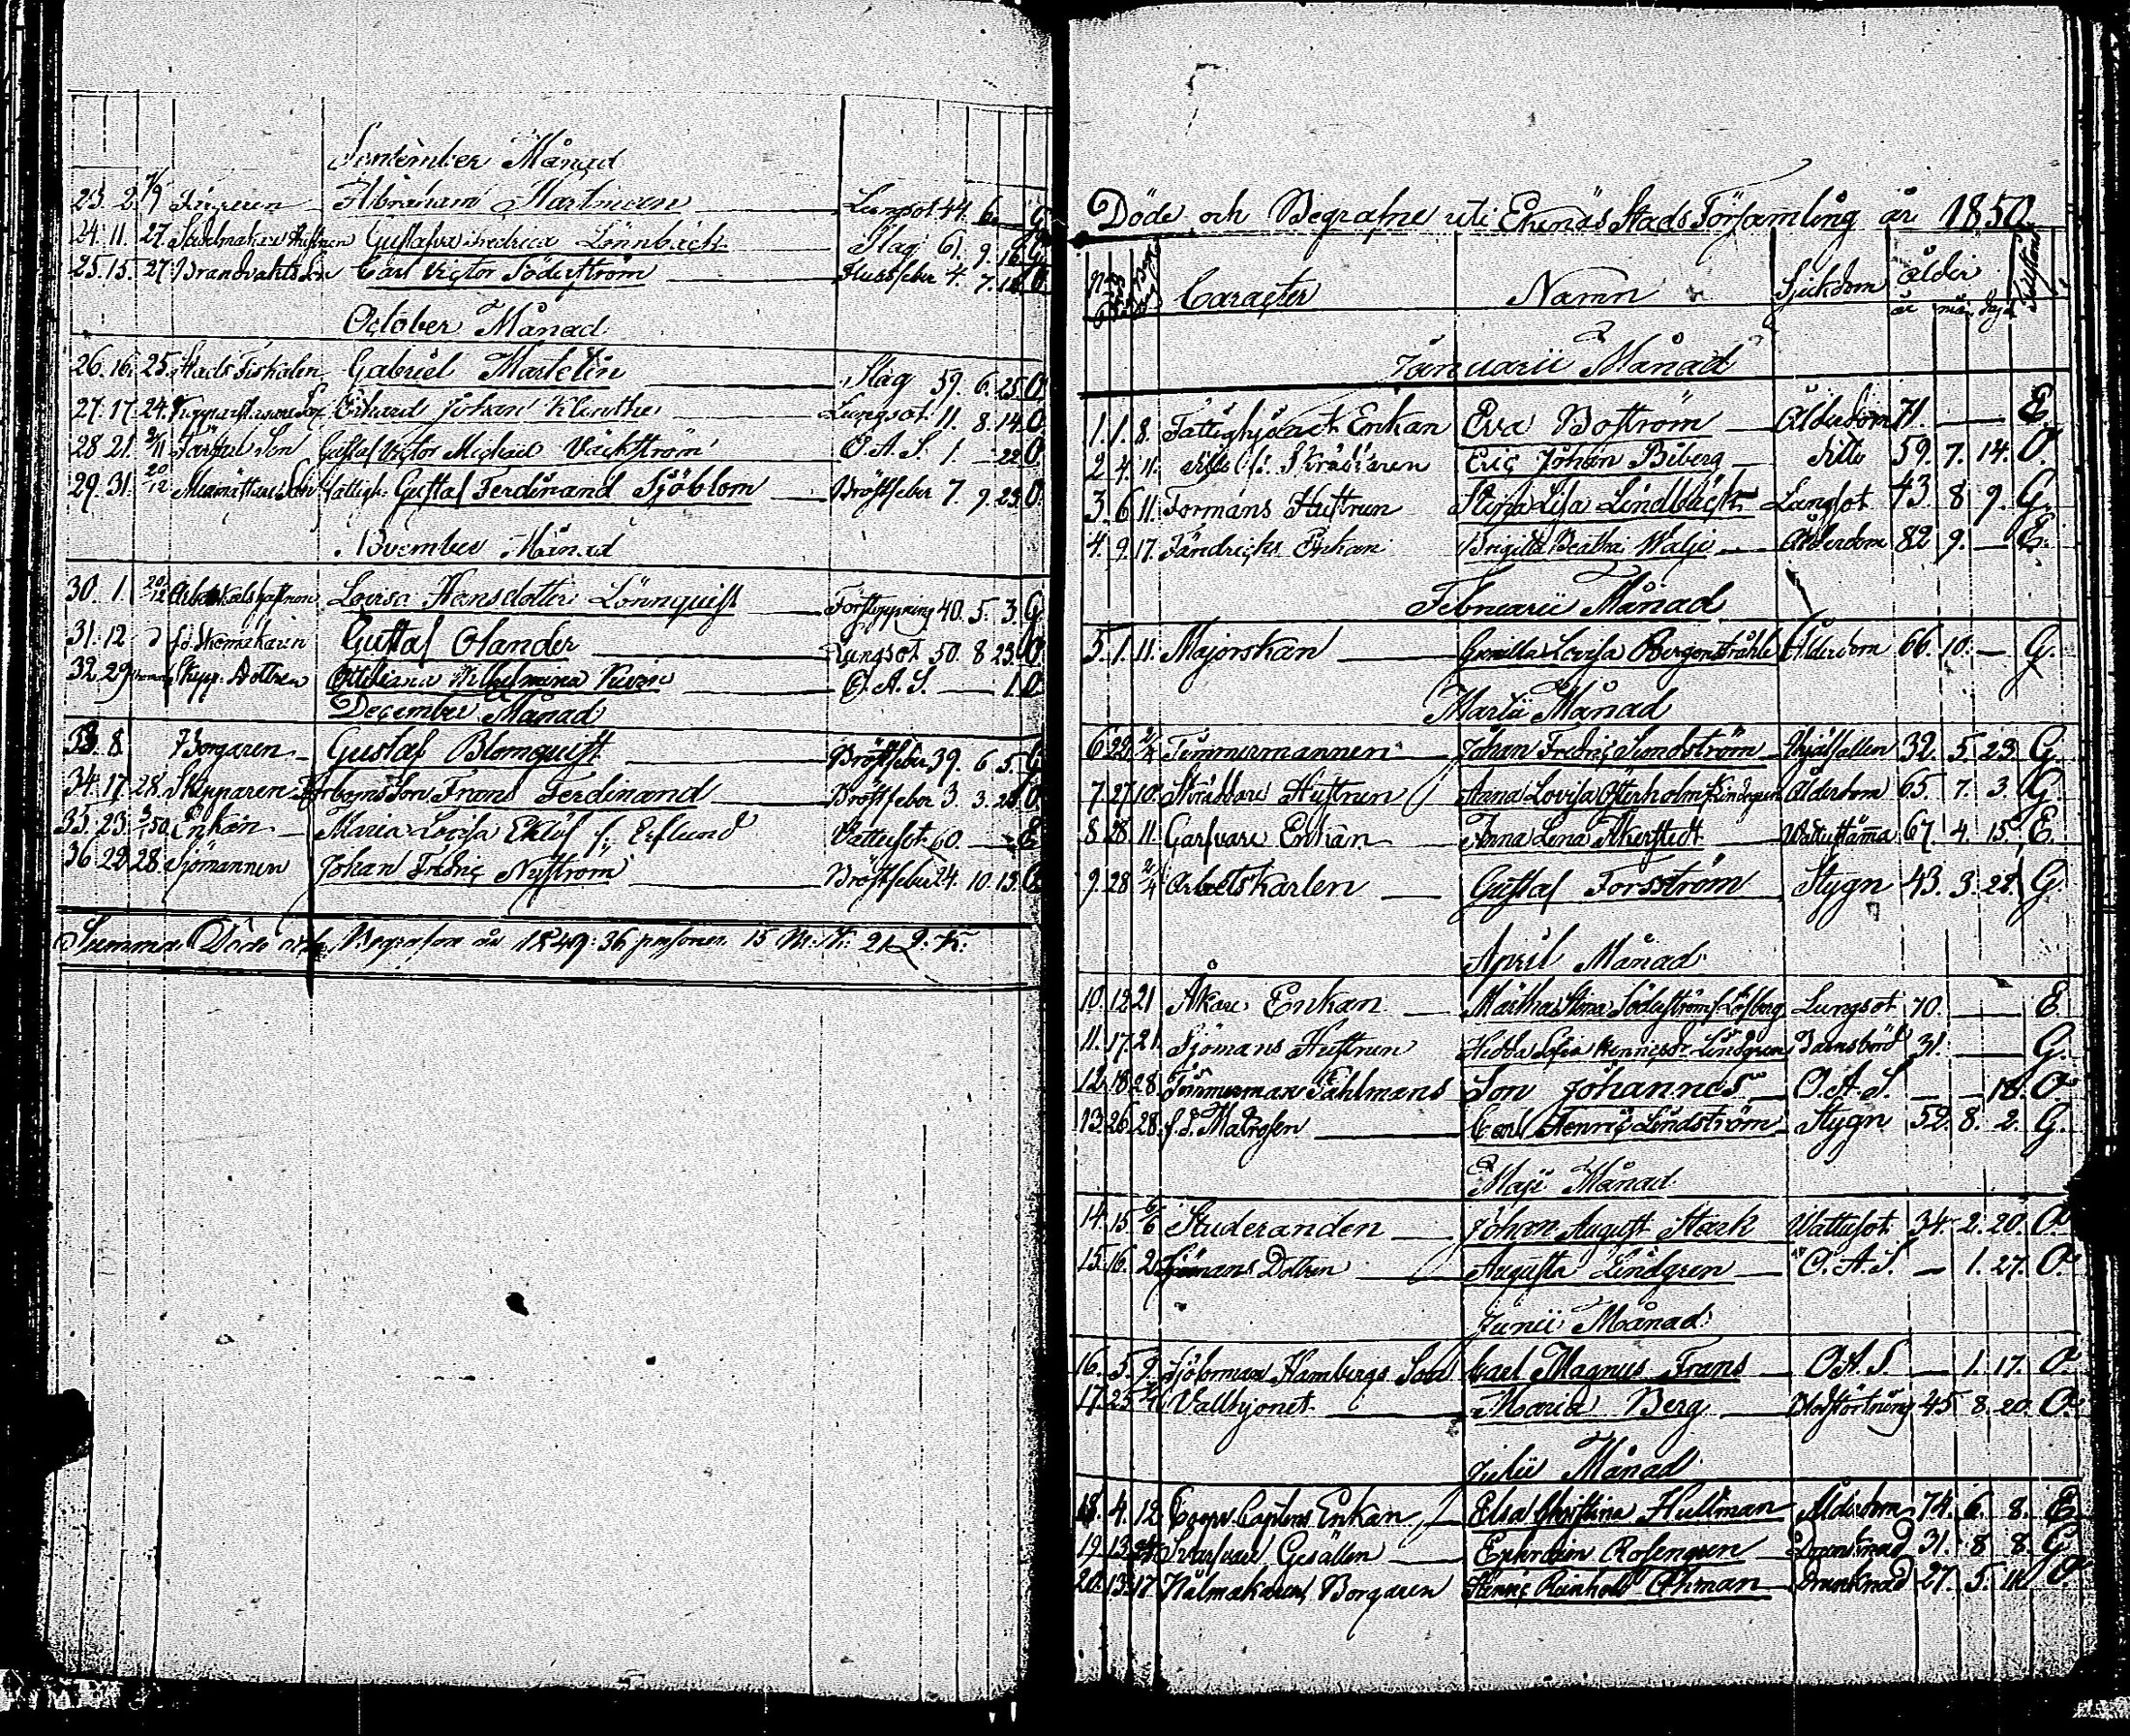 September Månad
23. 2. 7/9 Abraham Martinsen Lungsot 44. 6. G
24. 11. 27. Sadelmakare Hustrun Gustafva Fredrica Lönnbäck Slag 61. 9. 16 G
25. 15. 27. Brandvakts Son Carl Victor Söderström 4. 7. O
October Månad
26. 16. 25. Stads Fiskalen Gabriel Martelin Slag 59. 6. 25. O
27. 17. 24. Johan Klinthe Lungsot 11. 8. 14. O
28 21. Son Gustaf Victor Michael Väckström O.A.S. 1 — 22 O
29. 31. 20/12 Gustaf Ferdinand Sjöblom Bröstfeber 7. 9. 23. O.
November Månad
30. 1. 20/12 Lovisa Hansdotter Lönnquist 40. 5. 3. G
31. 12 Gustaf Olander Lungsot 50. 8 23. O
32 29 Skepp. Dottren Wilhelmina O.A.S. — 1. O
December Månad
33. 8. Borgaren Gustaf Blomquist Bröstfeber 39. 6 5 G
34. 17. 28. Skepparen Son Frans Ferdinand Bröstfeber 3. 3. 28. O
35. 23. Enkan Maria Lovisa Eklöf f. Esflund Vattusot 60. — E
36 22 28. Sjömannen Johan Fredric Nyström Bröstfeber 24. 10. 13. O
Summa Döde och Begrafne år 1849: 36 personer. 15 M.K. 21 Q.K.
Döde och Begrafne uti Ekenäs Stads Församling år 1850.
Caracter Namn Sjukdom ålder
år mån. dag.
Januarii Månad
1. 1. 8. Fattighjonet Enkan Eva Boström Ålderdom 71. — E.
2. 4. 11. Ditto f.d. Skräddaren Eric Johan Biberg Ditto 59. 7. 14. O.
3. 6. 11. Formans Hustrun Stina Lisa Lindbäck Lungsot 43 8 9. G.
4. 9. 17. Fändrichs Enkan Brigitta Beatha Ålderdom 82 9. — E.
Februarii Månad
5. 1. 11. Majorskan Gunilla Lovisa Bergenstråhle Ålderdom 66. 10. — G.
Martii Månad
6 22 2/4 Timmermannen Johan Fredric Sundström 32. 5. 23. G
7. 27. 10. Skräddare Hustrun Anna Lovisa Österholm Ålderdom 65. 7. 3. G.
8 28. 11. Garfvare Enkan Anna Lena Åkerstedt 67. 4. 15. E.
9. 28 2/4 Arbetskarlen Gustaf Forsström Stygn 43. 3. 28. G.
April Månad
10. 12 21 Åkare Enkan Märtha Stina Söderström f. Löfberg Lungsot 70. — E.
11. 17. 21. Sjömans Hustrun Hedda Sofia Lindgren Barnsbörd 31. — G.
12. 18. 28. Timmerman Fahlmans Son Johannes O.A.S. — — 18. O.
13. 26. 28. f.d. Matrosen Carl Henric Lindström Stygn 52. 8. 2. G.
Maji Månad
14. 15. 6/6 Studeranden Johan August Stark Wattusot 34. 2. 20. O.
15. 16. 2 Sjömans Dottren Augusta Lindgren O.A.S. — 1. 27. O.
Junii Månad
16. 5. 9. Hambergs Son Carl Magnus Frans O.A.S. — 1. 17. O.
17. 25 Vallhjonet Maria Berg Blodstörtning 45. 8. 20. O.
Julii Månad
18. 4. 12. Enkan Elsa Christina Hultman Ålderdom 74. 6. 8. E.
19. 13. Svarfvare Gesällen Ephraim Rosengren Drunknad 31. 8 8. G
20. 13. 17. Nålmakaren, Borgaren Henric Reinhold Öhman Drunknad 27. 5. 11. O